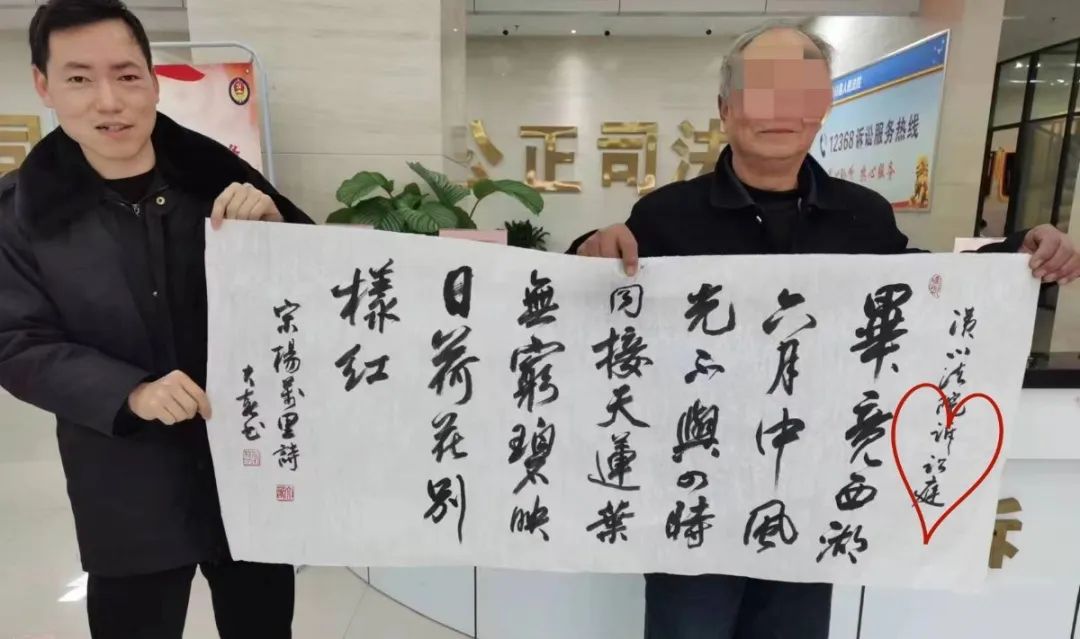 潢川法院诉讼庭
畢竟西湖
六月中風
光不與四時
同接天蓮葉
無窮碧映
日荷花別
樣紅
宋楊萬里詩
公正司法
司
县人民法院
12368诉讼服务热线
热心服务
诉